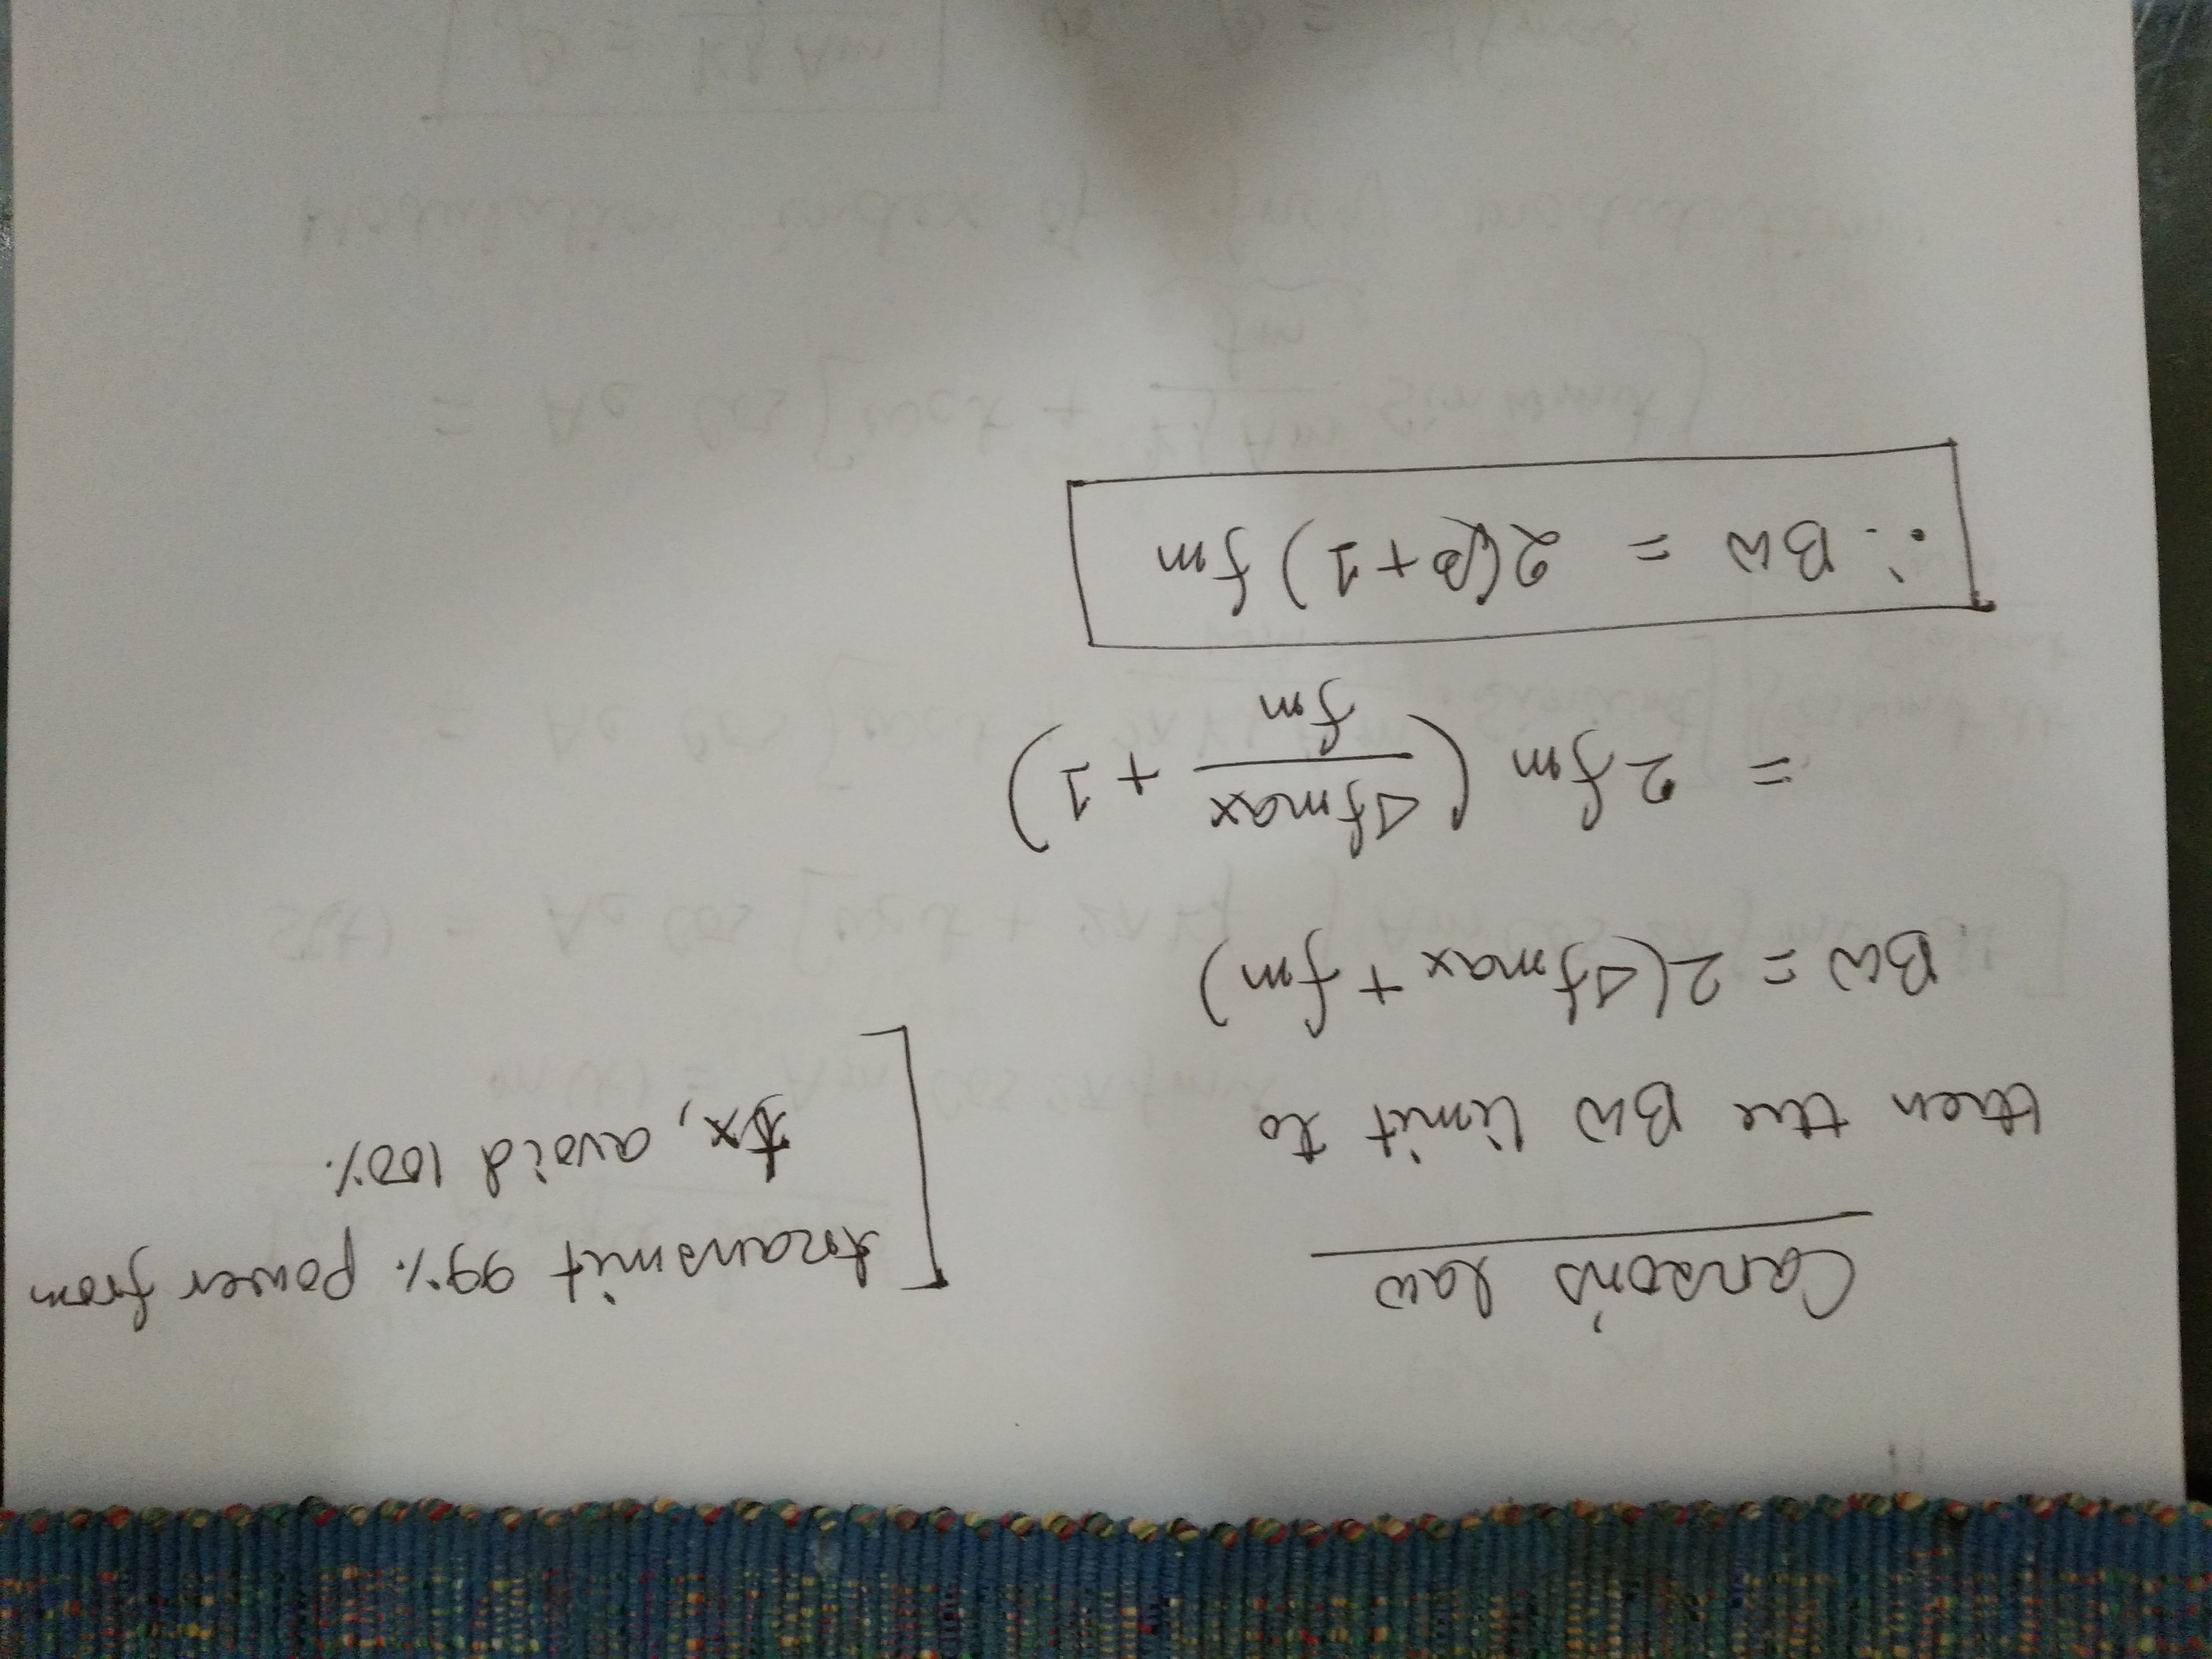 Carson's law
[transmit 99% power from
tx, avoid 100%.
then the BW limit to
BW = 2(Δfmax + fm)
= 2fm (Δfmax/fm + 1)
∴ BW = 2(β+1) fm